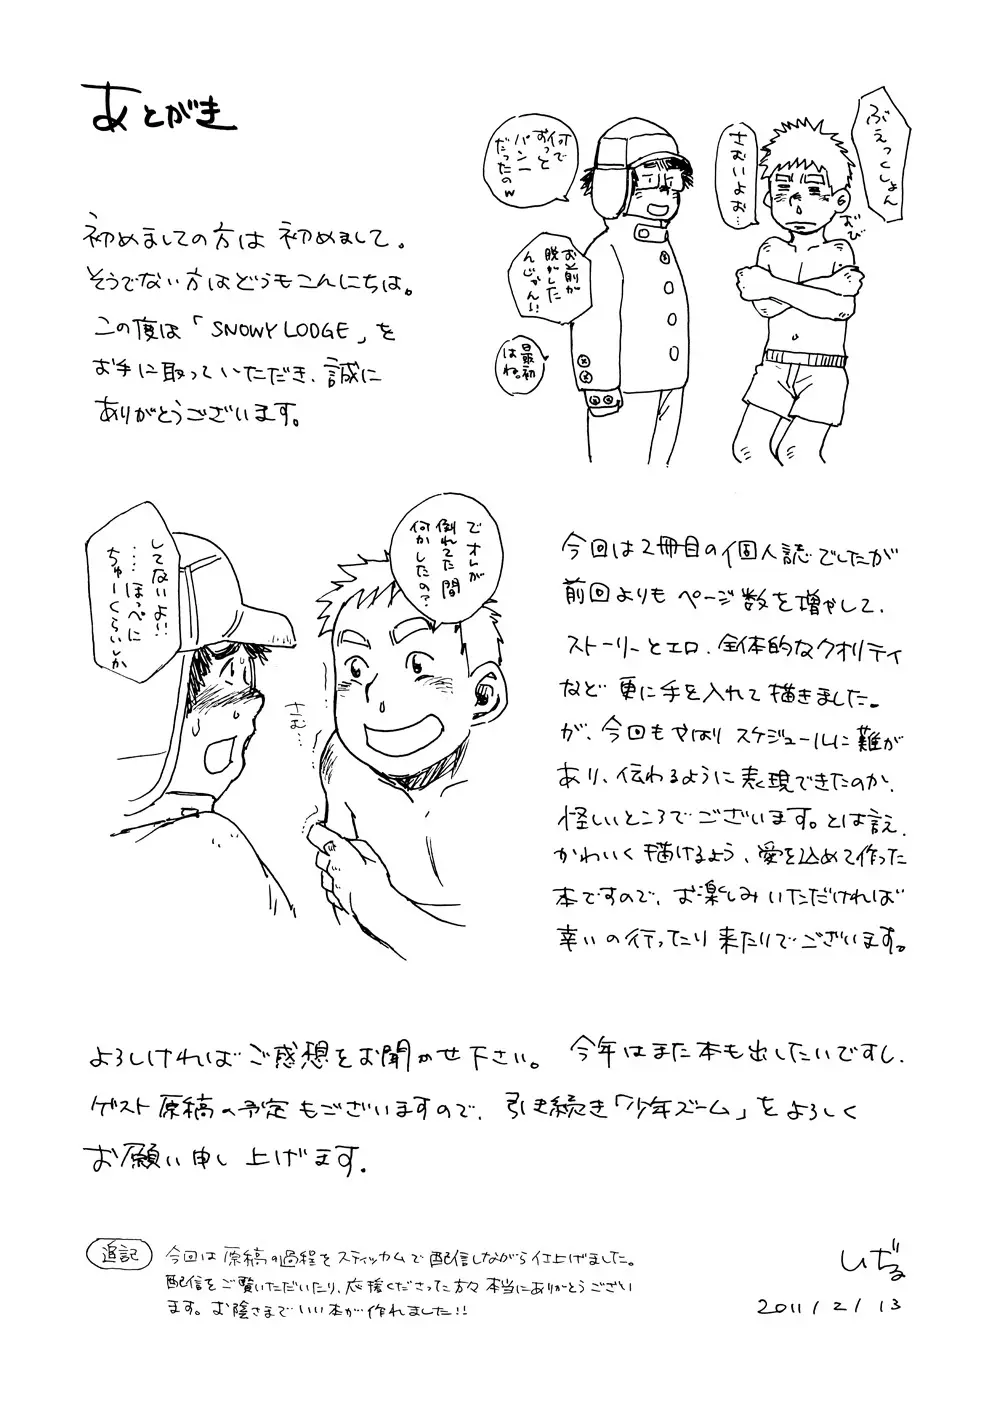 あとがき
初めましての方は初めまして。
そうでない方はどうもこんにちは。
この度は「SNOWY LODGE」を
お手に取っていただき、誠に
ありがとうございます。
ぶえっくしょん
さむいよぉ…
何で
ずっと
パンツ一
だったのw
お前が
脱がした
んじゃん!!
最初
はね。
でオレが
倒れてた間
何かしたの?
してないよ!!
……ほっぺに
ちゅーくらいしか
さむ…
今回は2冊目の個人誌でしたが
前回よりもページ数を増やして、
ストーリーとエロ、全体的なクオリティ
など更に手を入れて描きました。
が、今回もやはりスケジュールに難が
あり、伝わるように表現できたのか、
怪しいところでございます。とは言え、
かわいく描けるよう、愛を込めて作った
本ですので、お楽しみいただければ
幸いの行ったり来たりでございます。
よろしければご感想をお聞かせ下さい。今年はまた本も出したいですし、
ゲスト原稿の予定もございますので、引き続き「少年ズーム」をよろしく
お願い申し上げます。
追記 今回は原稿の過程をスティッカムで配信しながら仕上げました。
配信をご覧いただいたり、応援くださった方々本当にありがとうござい
ます。お陰さまでいい本が作れました!!
いぢる
2011/2/13